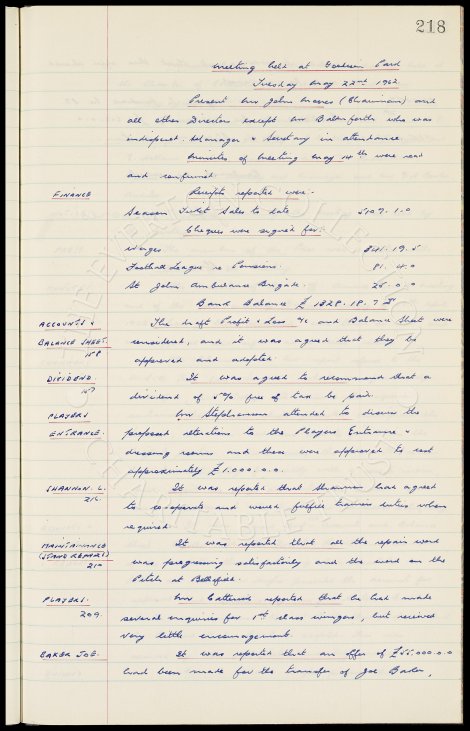 218
Meeting held at Goodison Park
Tuesday May 22nd 1962.
Present Mr John Moores (Chairman) and
all other Directors except Mr Balmforth who was
indisposed. Manager & Secretary in attendance.
Minutes of Meeting May 14th were read
and confirmed.
FINANCE Receipts reported were.
Season Ticket Sales to date 5109. 1. 0
Cheques were signed for.
Wages. 841. 19. 5.
Football League re Pensions. 81. 4. 0
St John Ambulance Brigade. 25. 0. 0
Bank Balance £ 1828. 18. 7
ACCOUNTS & The draft Profit & Loss A/c and Balance Sheet were
BALANCE SHEET. considered, and it was agreed that they be
158 approved and adopted.
DIVIDEND It was agreed to recommend that a
157 dividend of 5% free of tax be paid.
PLAYERS Mr Stephenson attended to discuss the
ENTRANCE. proposed alterations to the Players Entrance &
dressing rooms and these were approved to cost
approximately £1.000. 0. 0.
SHANNON L. It was reported that Shannon had agreed
216. to co-operate and would fulfil training duties when
required.
MAINTAINANCE It was reported that all the repair work
(STAND REPAIRS) was progressing satisfactorily and the work on the
210 Pitch at Bellefield.
PLAYERS. Mr Catterick reported that he had made
209. several inquiries for 1st class wingers, but received
very little encouragement.
BAKER JOE. It was reported that an offer of £55.000. 0. 0
had been made for the transfer of Joe Baker,